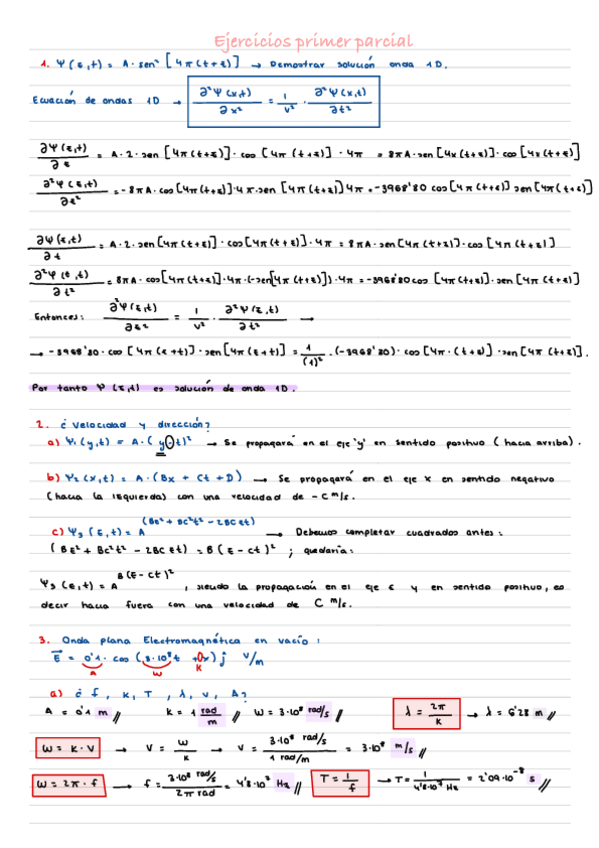 Ejercicios primer parcial
1. Ψ(z,t) = A · sen² [4π(t+z)] → Demostrar solución onda 1D.
Ecuación de ondas 1D → ∂²Ψ(x,t)/∂x² = 1/v² · ∂²Ψ(x,t)/∂t²
∂Ψ(z,t)/∂z = A · 2 · sen [4π(t+z)] · cos [4π(t+z)] · 4π = 8πA · sen [4π(t+z)] · cos [4π(t+z)]
∂²Ψ(z,t)/∂z² = -8πA · cos [4π(t+z)] · 4π · sen [4π(t+z)] 4π = -3968'80 cos [4π(t+z)] sen [4π(t+z)]
∂Ψ(z,t)/∂t = A · 2 · sen [4π(t+z)] · cos [4π(t+z)] · 4π = 8πA · sen [4π(t+z)] · cos [4π(t+z)]
∂²Ψ(z,t)/∂t² = 8πA · cos [4π(t+z)] · 4π · (-sen [4π(t+z)]) · 4π = -3968'80 cos [4π(t+z)] · sen [4π(t+z)]
Entonces: ∂²Ψ(z,t)/∂z² = 1/v² · ∂²Ψ(z,t)/∂t² →
→ -3968'80 · cos [4π(z+t)] · sen [4π(z+t)] = 1/(1)² · (-3968'80) · cos [4π · (t+z)] · sen [4π (t+z)].
Por tanto Ψ(z,t) es solución de onda 1D.
2. ¿ Velocidad y dirección?
a) Ψ₁(y,t) = A · (y - t)² → Se propagará en el eje 'y' en sentido positivo (hacia arriba).
b) Ψ₂(x,t) = A · (Bx + Ct + D) → Se propagará en el eje x en sentido negativo
(hacia la izquierda) con una velocidad de -C m/s.
c) Ψ₃(z,t) = A^(Bz² + BC²t² - 2BCzt) → Debemos completar cuadrados antes:
(Bz² + BC²t² - 2BCzt) = B(z - ct)² ; quedaría:
Ψ₃(z,t) = A^B(z-Ct)² , siendo la propagación en el eje z y en sentido positivo, es
decir hacia fuera con una velocidad de C m/s.
3. Onda plana Electromagnética en vacío:
E⃗ = 0'1 · cos (3·10⁸t + 0x) j v/m
A w k
a) ¿ f, k, T, λ, v, A?
A = 0'1 m // k = 1 rad/m W = 3·10⁸ rad/s // λ = 2π/k → λ = 6'28 m //
W = k · v → v = w/k → v = 3·10⁸ rad/s / 1 rad/m = 3·10⁸ m/s //
W = 2π · f → f = 3·10⁸ rad/s / 2π rad = 4'8·10⁷ Hz // T = 1/f → T = 1/4'8·10⁷ Hz = 2'09·10⁻⁸ s //